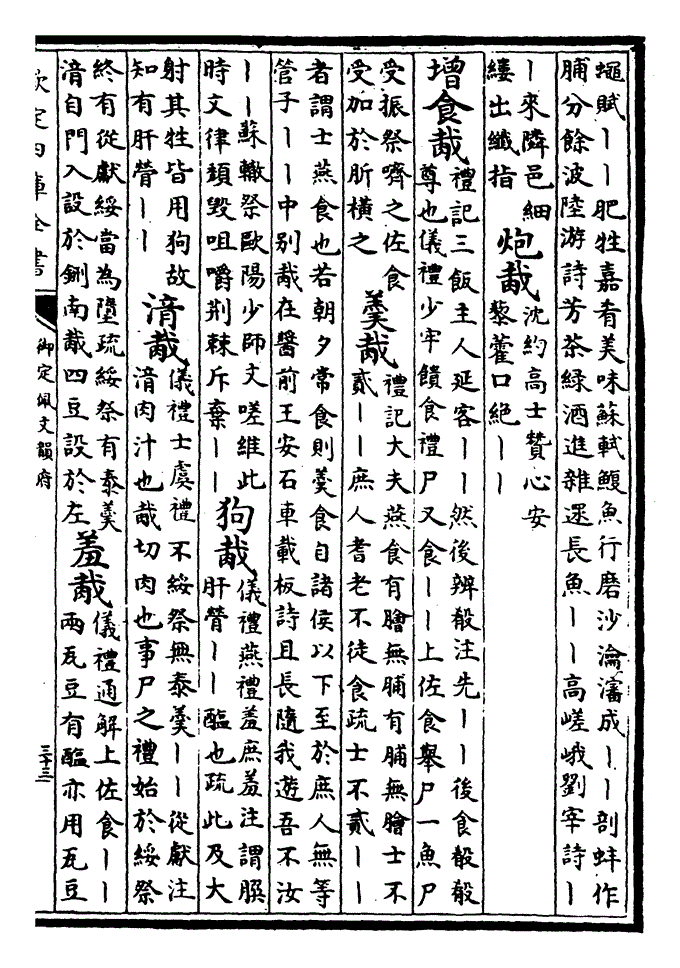 蠅賦丨丨肥牲嘉肴美味蘇軾鰒魚行磨沙瀹瀋成丨丨剖蚌作
脯分餘波陸游詩芳茶綠酒進雜還長魚丨丨高嵯峨劉宰詩丨
丨來隣邑細
縷出纖指
炮胾
沈約高士贊心安
藜藿口絕丨丨
增食胾
禮記三飯主人延客丨丨然後辨殽注先丨丨後食殽殽
尊也儀禮少牢饋食禮尸又食丨丨上佐食舉尸一魚尸
受振祭嚌之佐食
受加於肵橫之
羮胾
禮記大夫燕食有膾無脯有脯無膾士不
貳丨丨庶人耆老不徒食疏士不貳丨丨
者謂士燕食也若朝夕常食則羮食自諸侯以下至於庶人無等
管子丨丨中别胾在醬前王安石車載板詩且長隨我遊吾不汝
丨丨蘇轍祭歐陽少師文嗟維此
時文律頽毀咀嚼荆棘斥棄丨丨
狗胾
儀禮燕禮羞庶羞注謂䐑
肝膋丨丨醢也疏此及大
射其牲皆用狗故
知有肝膋丨丨
湆胾
儀禮士虞禮不綏祭無泰羮丨丨從獻注
湆肉汁也胾切肉也事尸之禮始於綏祭
終有從獻綏當為墮疏綏祭有泰羮
湆自門入設於鉶南胾四豆設於左
羞胾
儀禮通解上佐食丨丨
兩瓦豆有醢亦用瓦豆
欽定四庫全書
御定佩文韻府
三十三